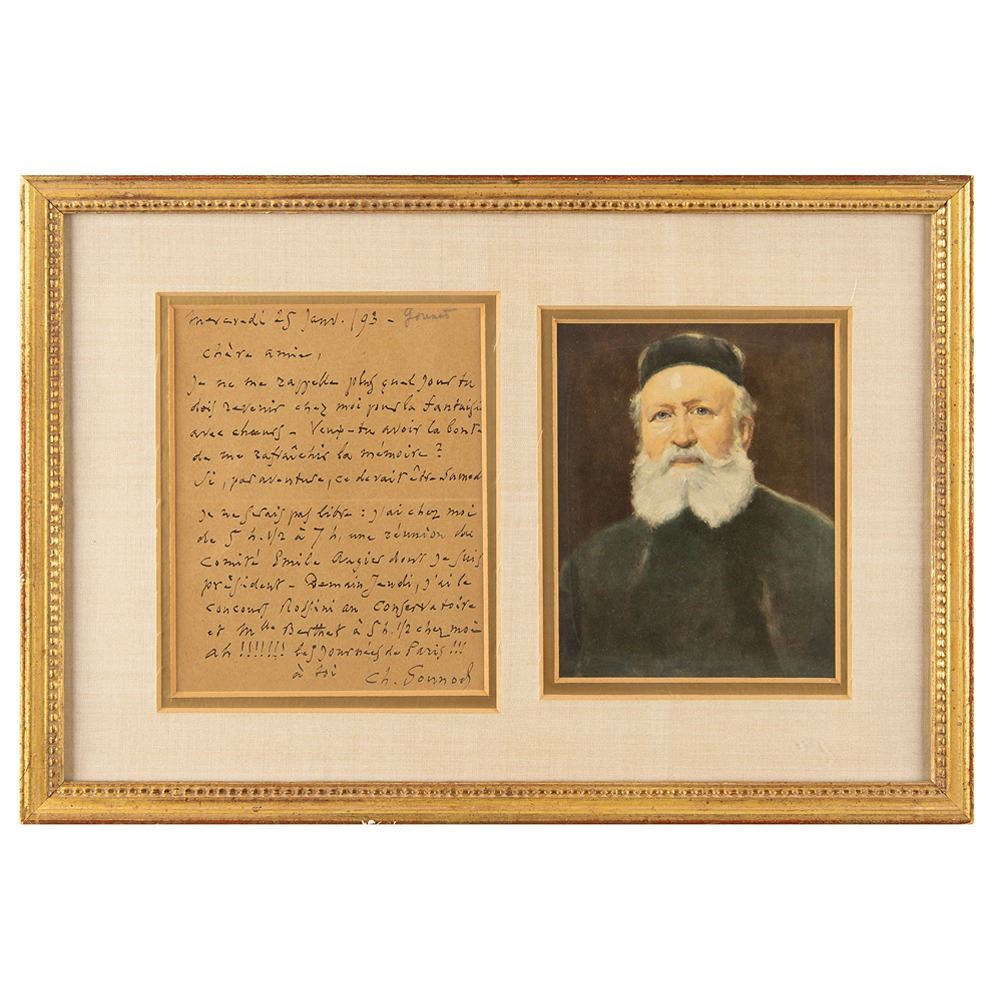 Mercredi 25 Janv. /93 - Gounod
Chère amie,
Je ne me rappelle plus quel jour tu
dois revenir chez moi pour la fantaisie
avec chœurs - Veux-tu avoir la bonté
de me rafraîchir la mémoire ?
Si, par aventure, ce devait être Samedi
Je ne serais pas libre : j'ai chez moi
de 5 h. 1/2 à 7 h, une réunion du
Comité Emile Augier dont je suis
président - Demain Jeudi, j'ai le
concours Rossini au Conservatoire
et Mlle Berthet à 5 h. 1/2 chez moi
ah !!!!!!! les Journées de Paris !!!
à toi Ch. Gounod